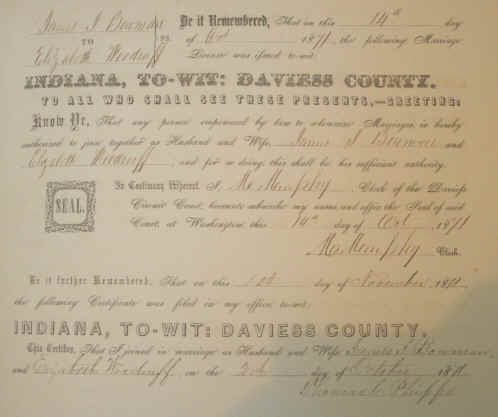 James I Bowman
TO
Elizabeth Woodruff
SS.
Be it Remembered, That on this 14th day
of Oct 1871 the following Marriage
License was issued to-wit:
INDIANA, TO-WIT: DAVIESS COUNTY.
TO ALL WHO SHALL SEE THESE PRESENTS,—GREETING:
Know Ye, That any person empowered by law to solemnize Marriages, is hereby
authorized to join together as Husband and Wife, James I Bowman and
Elizabeth Woodruff, and for so doing, this shall be his sufficient authority.
SEAL.
In Testimony Whereof, I, Clerk of the Daviess
Circuit Court, hereunto subscribe my name, and affix the Seal of said
Court, at Washington, this 14th day of Oct 1871
Clerk.
Be it further Remembered, That on this day of November 1871,
the following Certificate was filed in my office, to-wit:
INDIANA, TO-WIT: DAVIESS COUNTY.
This Certifies, That I joined in marriage as Husband and Wife James I Bowman
and Elizabeth Woodruff, on the day of October 1871.
Thomas